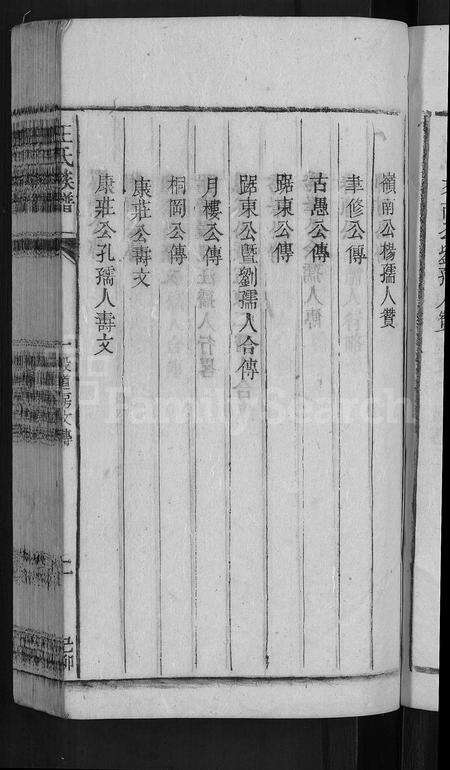 嶺南公楊孺人贊
聿修公傳
古愚公傳
踞東公傳
踞東公暨劉孺人合傳
月樓公傳
桐岡公傳
康莊公壽文
康莊公孔孺人壽文
王氏族譜
FamilySearch